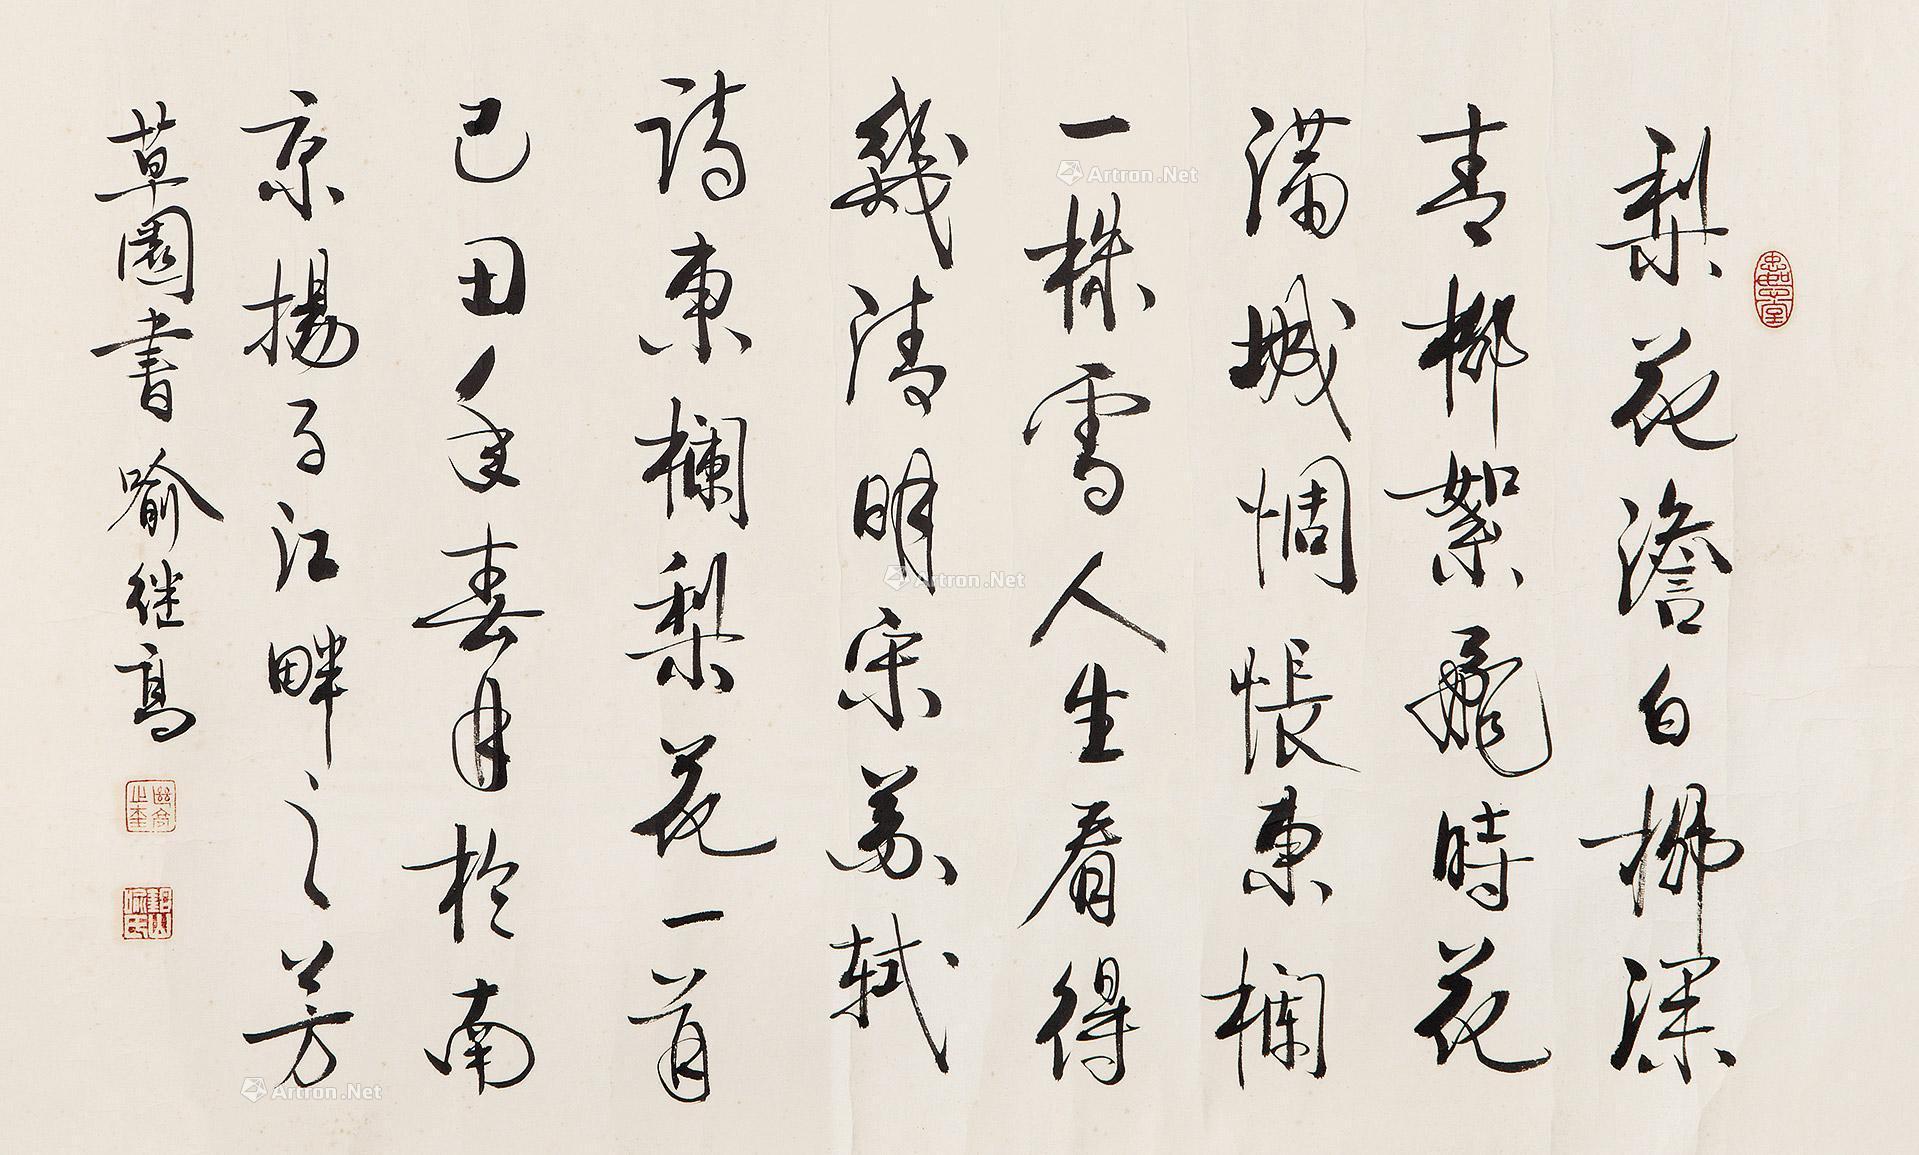 梨花澹白柳深
青柳絮飛時花
滿城惆悵東欄
一株雪人生看得
幾清明宋蘇軾
詩東欄梨花一首
己丑年春月於南
京揚子江畔之芳
草園書喻继高
Artron.Net
Artron.Net
Artron.Net